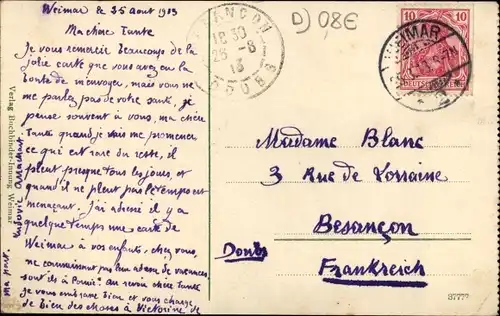 Weimar le 25 Aout 1913
Machine Tante
Je vous remercie beaucoup de la
jolie carte que vous avez eu la
bonté de m'envoyer, mais vous ne
me parlez pas de votre santé, je
pense souvent à vous, ma chère
Tante quand je vais me promener
ce qui est rare du reste, il
pleut presque tous les jours, et
quand il ne pleut pas le temps est
menaçant. J'ai adressé il y a
quelque temps une carte de
Weimar à vos enfants, chez vous,
ne connaissant pas leur adresse de vacances,
sont ils à Au revoir chère Tante
je vous embrasse bien et vous charge
de bien des choses à Victorine de
ma part.
Ludovic
Verlag Buchbinder-Innung Weimar
BESANCON
18 30
25 -8
13
DOUBS
D) 0,8€
10 10
DEUTSCHES REICH
WEIMAR
Madame Blanc
3 Rue de Lorraine
Besançon
Doubs
Frankreich
37777